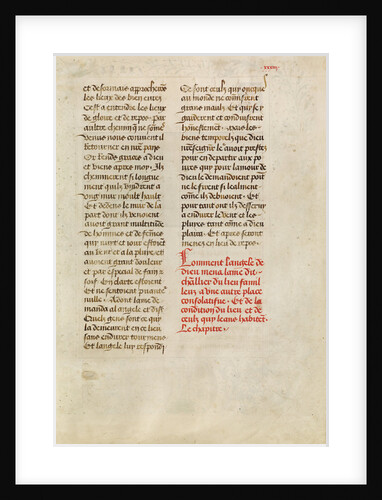 xxxiij
et desormais approcherons
les lieux des bien eurez
Cest a entendre les lieux
de gloire et de repos. par
autre chemin que ne sommes
venus nous convient il
retourner en nostre pays
Or rends graces a dieu
et viens apres moy. Ilz
cheminerent si longue
ment quilz vindrent a
vng mur moult hault
Et dedens le mur de la
part dont ilz venoient
avoit grant multitude
de hommes et de femmes
qui nuyt et iour estoient
au vent et a la pluye. et
avoient grant douleur
et par especial de faim et
soif. En clarte estoient
Et ne sentoient puantise
nulle. Adont lame de
manda al angele et dist
Quelz gens sont ce qui
la demeurent en ce lieu
sans endurer tourmens
Et langele luy respondi
Ce sont ceulx qui oncques
au monde ne commirent
grans maulx. Et qui se y
garderent et conduisirent
honestement. Mais les
biens temporelz que dieu
nre seigneur le avoit prestez
pour en departir aux po
vres qui pour lamour de
dieu le demandoient point
ne le firent si lealment
comme ilz debvoient. Et
pour tant ont ilz desservy
a endurer le vent et les
pluyes tant comme a dieu
plaira. Et apres seront
menez en lieu de repos.
Comment langele de
dieu mena lame dit
chevallier du lieu familleux
a vne autre place
consolatifue. Et de la
condition du lieu et de
ceulx qui leans habitent.
Le chapitre.